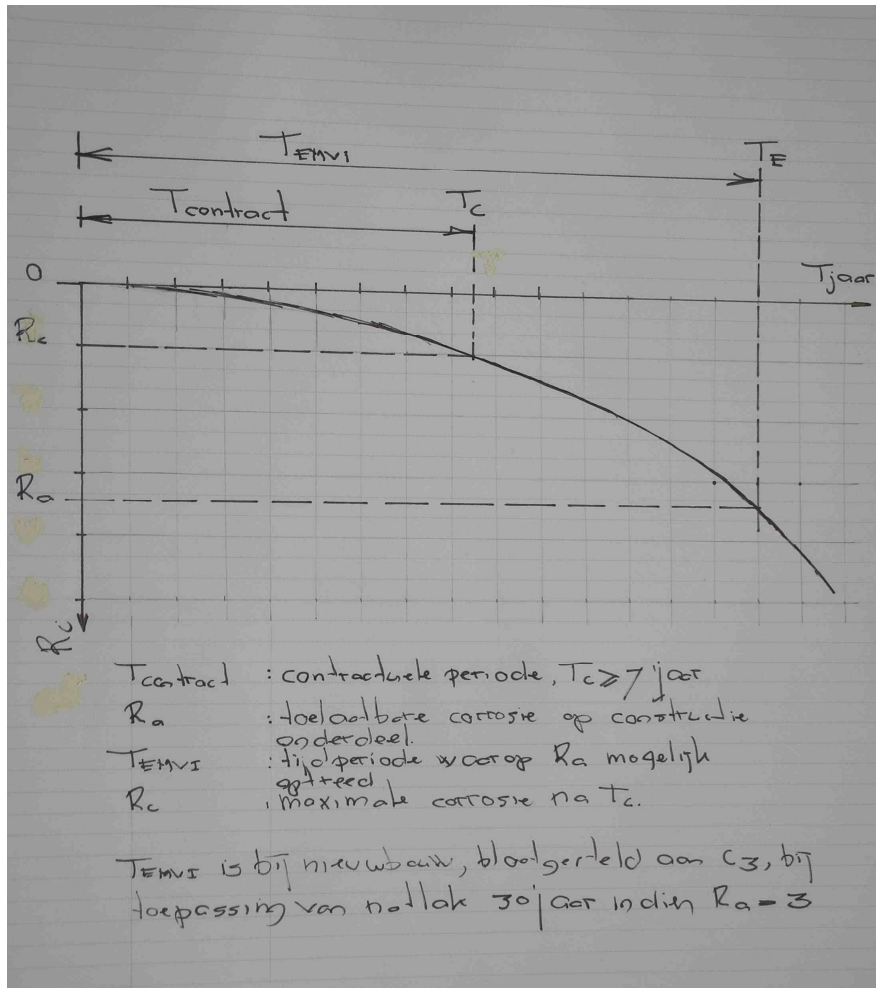 T_EMVI
T_E
T_contract
T_C
T_jaar
0
R_c
R_a
R_i
T_contract : contractuele periode, T_c ≥ 7 jaar
R_a : toelaatbare corrosie op constructie
onderdeel.
T_EMVI : tijdperiode waarop Ra mogelijk
optreed
R_c : maximale corrosie na T_c.
T_EMVI is bij nieuwbouw, blootgesteld aan C3, bij
toepassing van natlak 30 jaar indien Ra = 3